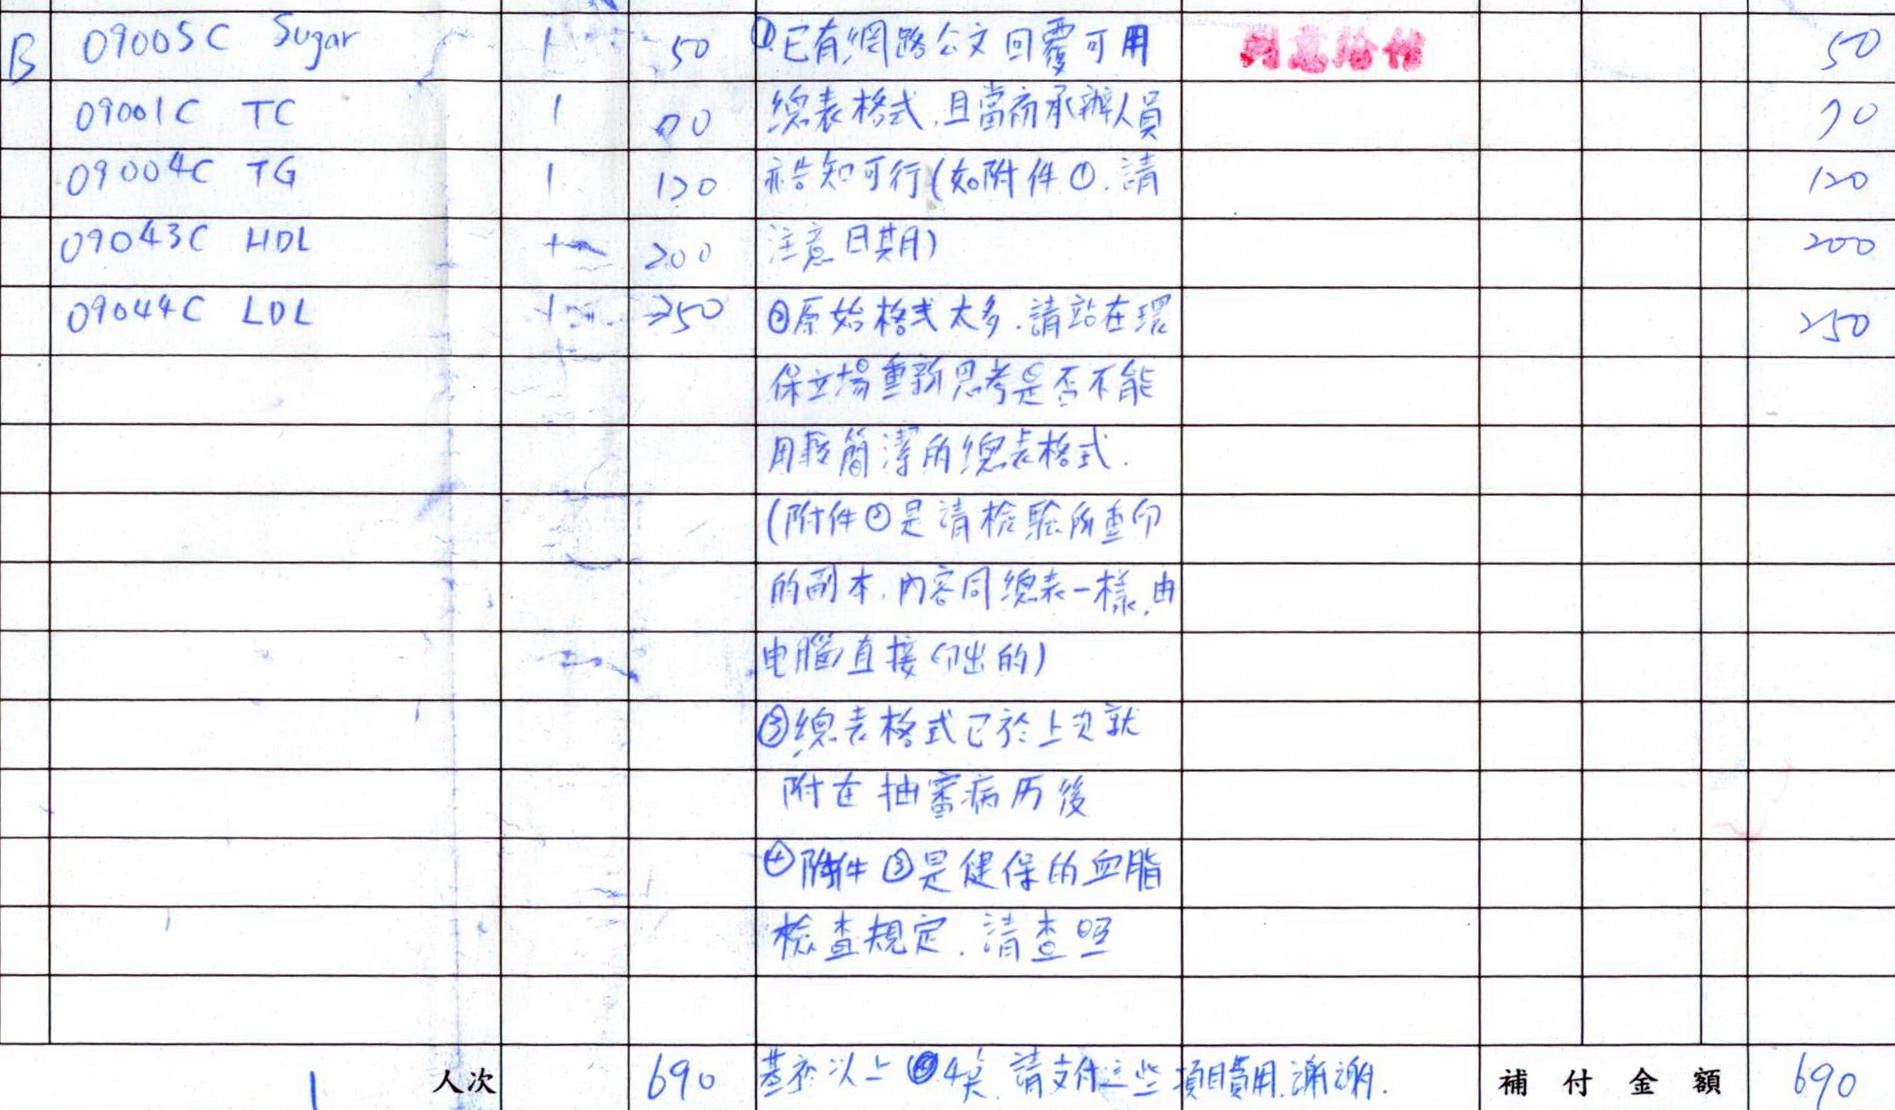 B 09005C Sugar 1 50 ①已有網路公文回覆可用 同意給付 50
09001C TC 1 70 總表格式,且當初承辦人員 70
09004C TG 1 120 亦告知可行(如附件①,請 120
09043C HDL 1 200 注意日期) 200
09044C LDL 1 250 ②原始格式太多,請站在環 250
保立場重新思考是否不能
用較簡潔的總表格式.
(附件②是請檢驗所查印
的副本,內容同總表一樣,由
电腦直接印出的)
③總表格式已於上次就
附在抽審病历後
④附件③是健保的血脂
檢查規定,請查照
1 人次 690 基於以上4矣,請支付這些項目費用,謝謝. 補付金額 690